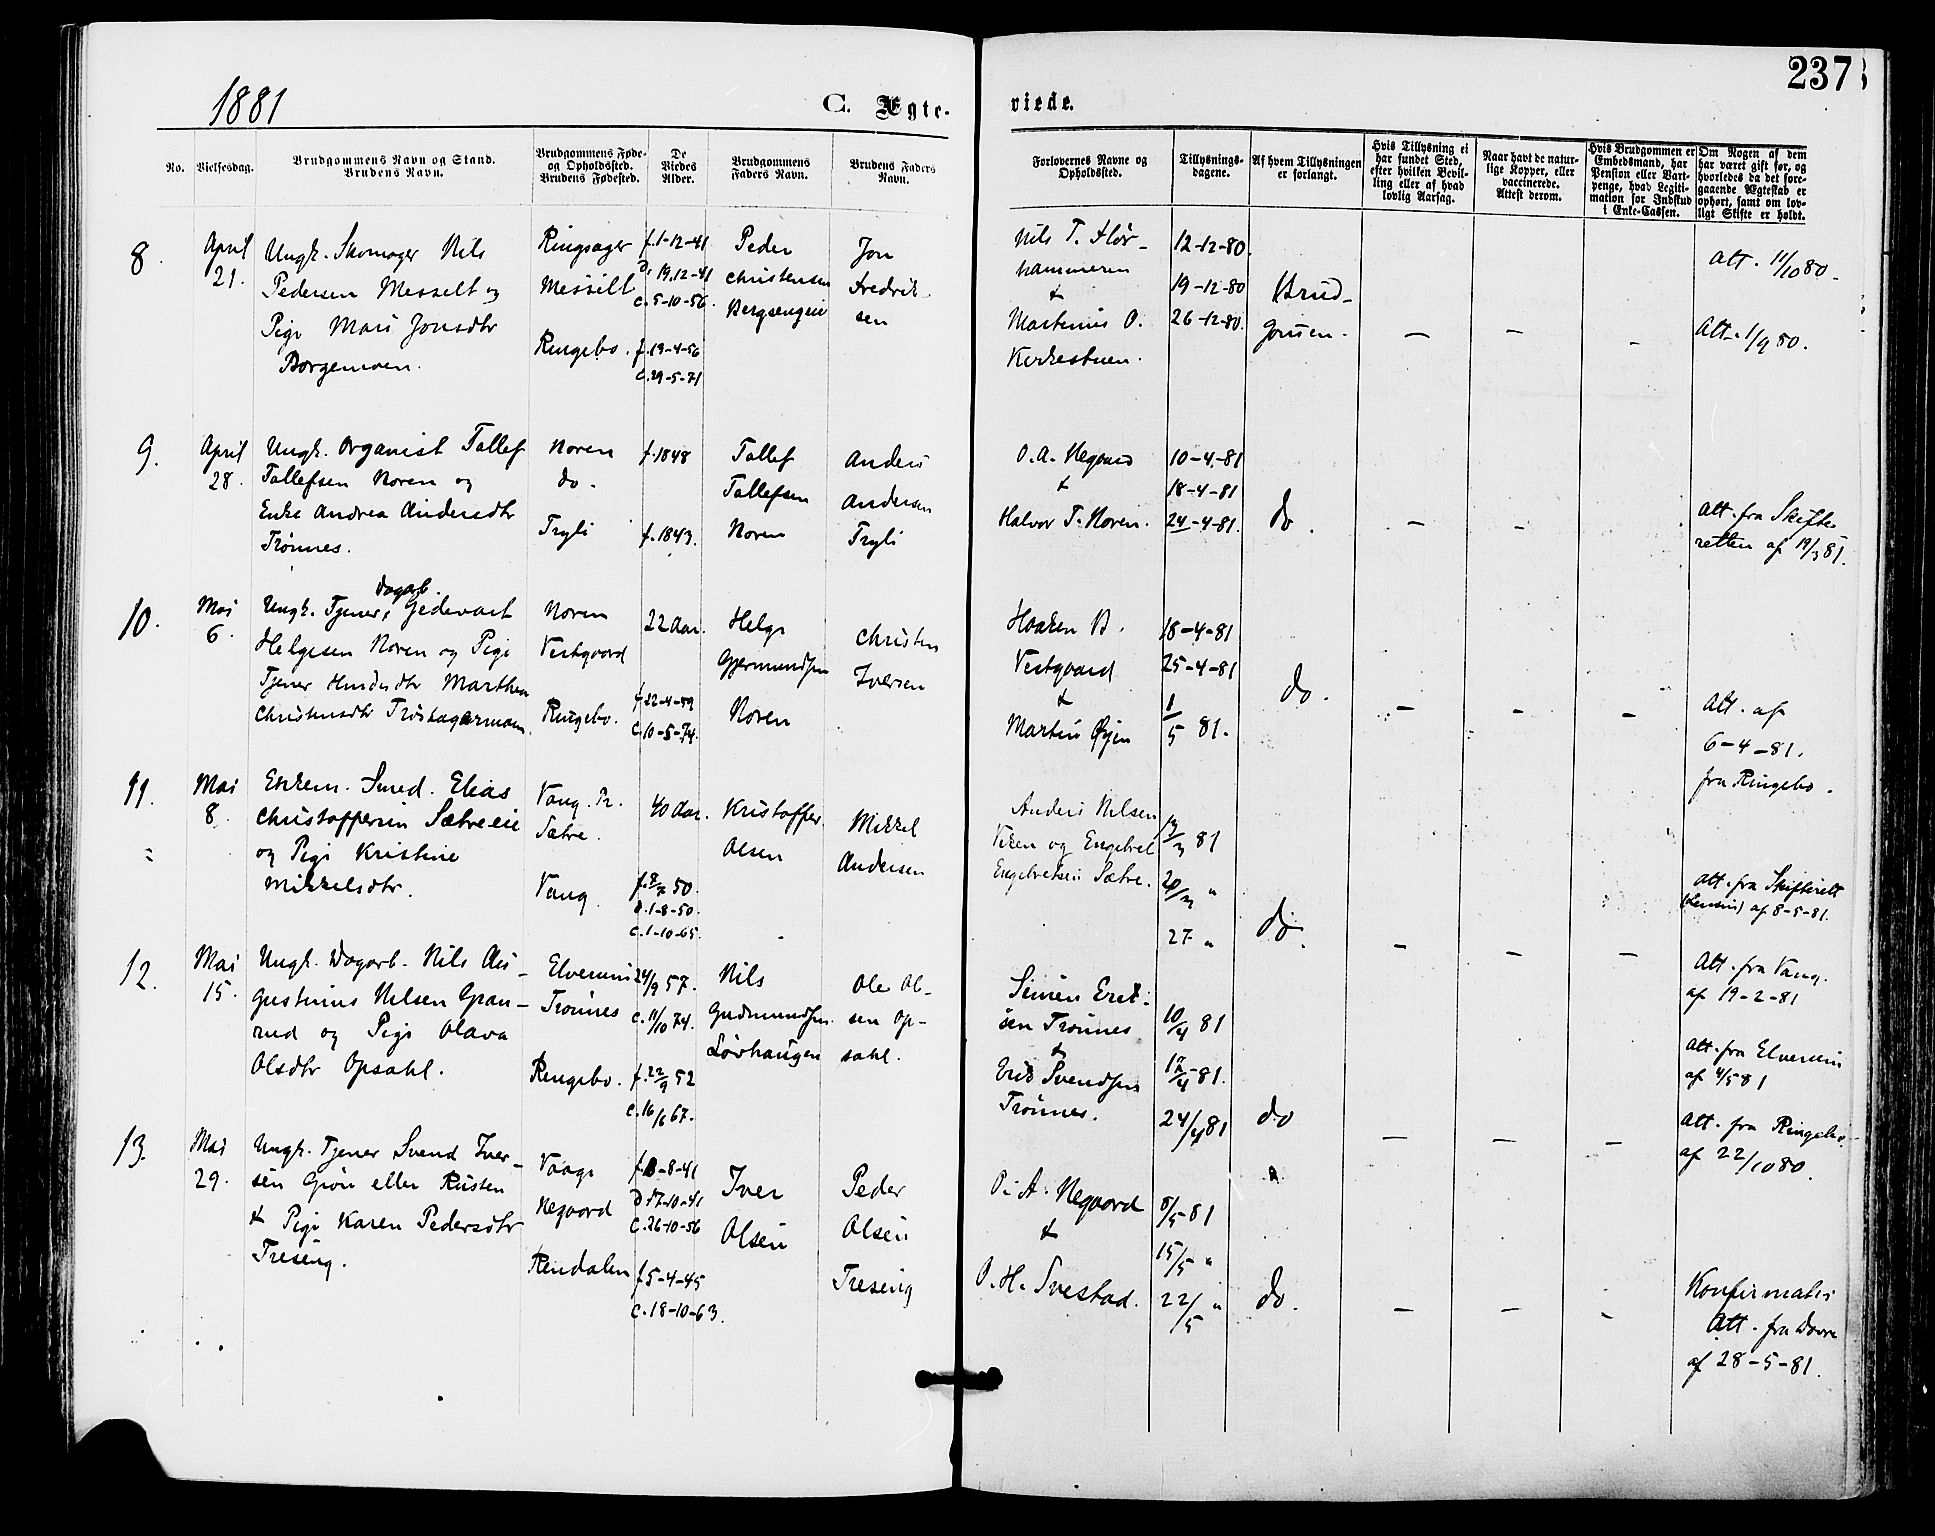 237
1881
C. Ægte-
viede.
No.
Vielsesdag.
Brudgommens Navn og Stand.
Brudens Navn.
Brudgommens Føde-
og Opholdssted.
Brudens Fødested.
De
Viedes
Alder.
Brudgommens
Faders Navn.
Brudens Faders
Navn.
Forlovernes Navne og
Opholdssted.
Tillysnings-
dagene.
Af hvem Tillysningen
er forlangt.
Hvis Tillysning ei
har fundet Sted,
efter hvilken Bevil-
ling eller af hvad
lovlig Aarsag.
Naar havt de natur-
lige Kopper, eller
vaccinerede.
Attest derom.
Hvis Brudgommen er
Embedsmand, har
Pension eller Vart-
penge, hvad Legiti-
mation for Indskud
i Enke-Cassen.
Om Nogen af dem
har været gift før, og
hvorledes da det fore-
gaaende Ægteskab er
ophørt, samt om lov-
ligt Skifte er holdt.
8.
April
21.
Ungk. Skomager Nils
Pedersen Messelt og
Pige Mari Jonsdtr
Borgemoen.
Ringsager
Messelt
Ringebo.
f. 1-12-41
D. 19.12-41
C. 5-10-56.
f. 19-4-56
C. 29-5-71
Peder
Christensen
Bergsengeie
Jon
Fredrik-
sen
Nils T. Flør-
hammeren
&
Martinus O.
Kirkestuen.
12-12-80.
19-12-80
26-12-80.
Brud-
gommen.
—
—
—
Att. 11/10 80-
Att. 1/9 80.
9.
April
28.
Ungk. Organist Tallef
Tallefsen Noren og
Enke Andrea Andersdtr
Trønnes.
Noren
do.
Tryli
f. 1848
f. 1843.
Tallef
Tallefsen
Noren
Anders
Andersen
Tryli
O. A. Negaard
&
Halvor T. Noren.
10-4-81
18-4-81
24-4-81.
do.
—
—
—
Att. fra Skifte-
retten af 19/3 81.
10.
Mai
6.
Dagarb.
Ungk. Tjener, Gedevart
Helgesen Noren og Pige
Tjener Marthea
Christensdtr
Noren
Vestgaard
Ringebo.
22 Aar.
f 22-4-59
C. 10-5-74.
Helge
Gjermundsen
Noren
Christen
Iversen
Haaken B.
Vestgaard
&
Martin Øyen
18-4-81
25-4-81
1/5 81.
do.
—
—
—
Att. af
6-4-81.
fra Ringebo.
11.
Mai
8.
Enkem. Smed. Elias
Christoffersen Sætreeie
og Pige Kristine
Mikkelsdtr.
Vang. Pr.
Sætre.
Vang
40 Aar.
50.
D. 1-8-50.
C. 1-10-65.
Kristoffer
Olsen
Mikkel
Andersen
Anders Nilsen
Viken og Engebret
Engebretsen Sætre.
13/3 81
20/3 "
27 "
do.
—
—
—
Att. fra Skifterett
af 8-5-81.
12.
Mai
15.
Ungk. Dagarb. Nils Au-
gustinus Nilsen Gran-
rud og Pige Olava
Olsdtr Opsahl.
Elverum
Trønnes
Ringebo.
24/9 57.
C. 11/10 74.
f. 22/9 52
C. 16/6 67.
Nils
Gudmundsen
Løvhaugen
Ole Ol-
sen Op-
sahl.
Simen Erik-
sen Trønnes
&
Erik Svendsen
Trønnes.
10/4 81
17/4-81.
24/4 81
do
—
—
—
Att. fra Vang.
af 19-2-81
Att. fra Elverum
af 4/5 81
Att. fra Ringebo.
af 22/10 80.
13.
Mai
29.
Ungk. Tjener Svend Iver-
sen Grøn eller Rusten
& Pige Karen Pedersdtr
Treseng.
Vaage
Negaard
Rendalen
-8-41
D 17-10-41
C. 26-10-56
f 5-4-45
C. 18-10-63.
Iver
Olsen
Peder
Olsen
Treseng
P. A. Negaard
&
O. H. Svestad.
8/5-81
15/5 "
22/5 "
do.
—
—
Konfirmatis
Att. fra Dovre
af 28-5-81.